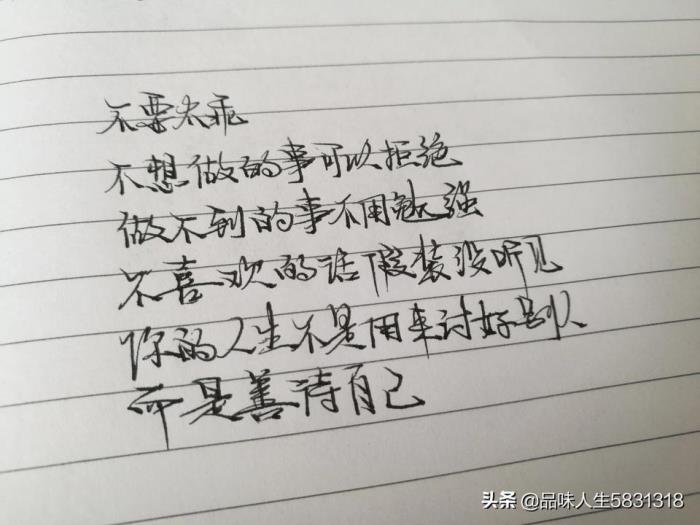 不要太乖
不想做的事可以拒绝
做不到的事不用勉强
不喜欢的话假装没听见
你的人生不是用来讨好别人
而是善待自己
头条 @品味人生5831318